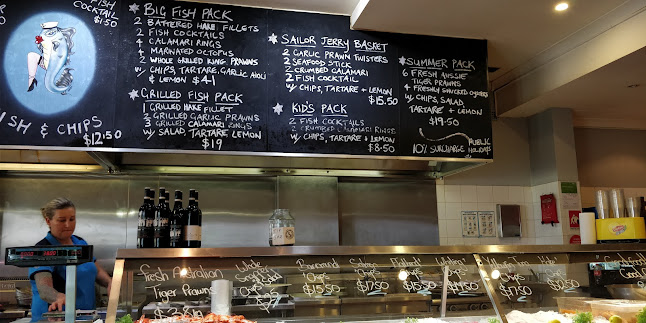 FISH
COCKTAIL
$1.50
ISH & CHIPS
$12.50
BIG FISH PACK
2 BATTERED HAKE FILLETS
2 FISH COCKTAILS
4 CALAMARI RINGS
4 MARINATED OCTOPUS
2 WHOLE GRILLED KING PRAWNS
W/ CHIPS, TARTARE, GARLIC AIOLI
& LEMON $41
GRILLED FISH PACK
1 GRILLED HAKE FILLET
2 GRILLED GARLIC PRAWNS
3 GRILLED CALAMARI RINGS
W/ SALAD, TARTARE LEMON
$19
SAILOR JERRY BASKET
2 GARLIC PRAWN TWISTERS
2 SEAFOOD STICK
2 CRUMBED CALAMARI
2 FISH COCKTAIL
W/ CHIPS, TARTARE + LEMON
$15.50
KID'S PACK
2 FISH COCKTAILS
2 CRUMBED CALAMARI RINGS
W/ CHIPS, TARTARE + LEMON
$8.50
SUMMER PACK
6 FRESH AUSSIE
TIGER PRAWNS
4 FRESHLY SHUCKED OYSTERS
W/ CHIPS, SALAD,
TARTARE + LEMON
$19.50
10% SURCHARGE PUBLIC
HOLIDAYS
Fresh Australian
Tiger Prawns
Whole
$25
Barramundi
Chips
$15
Salmon
Chips
$17.50
Grilled
Chips
$15.50
Chips
$14.50
Chips
$17.50
Chips
$7.50